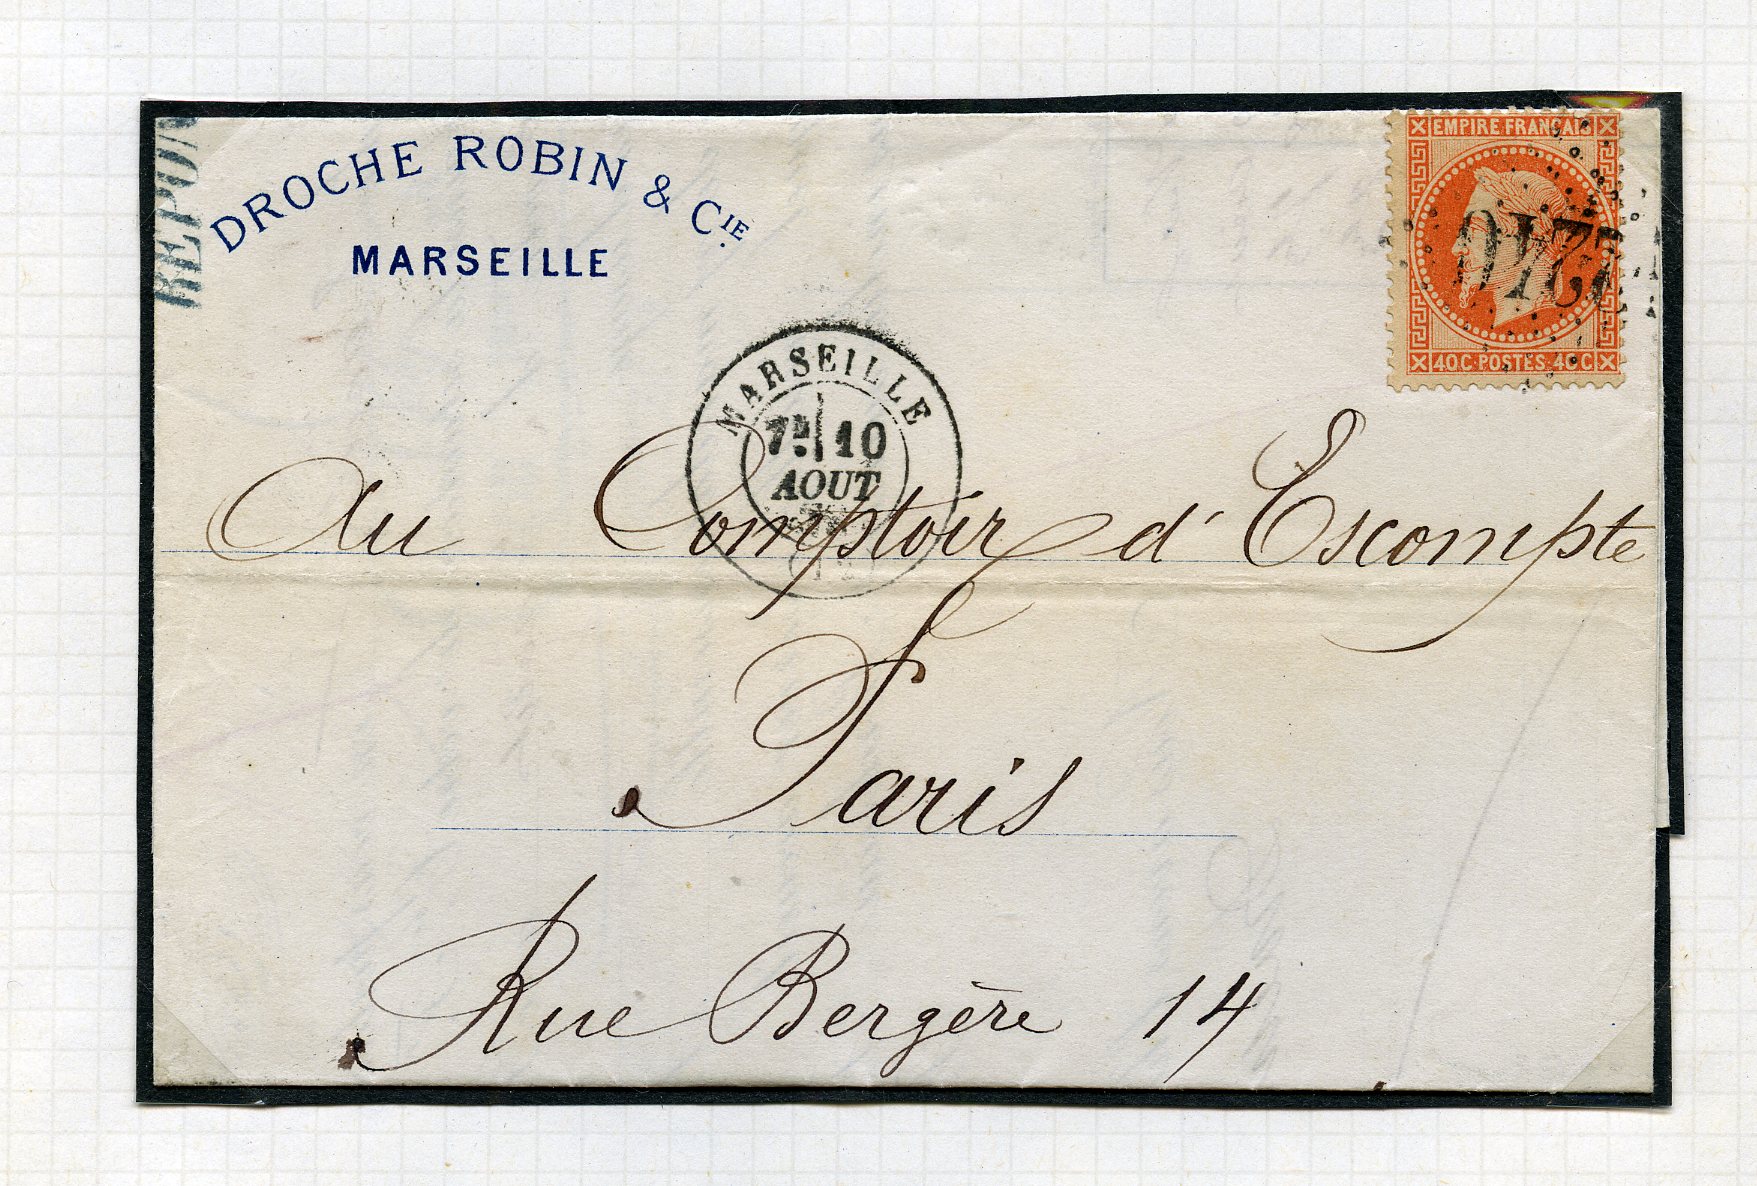 DROCHE ROBIN & CIE.
MARSEILLE
EMPIRE FRANÇAIS
2240
40 C. POSTES. 40 C
MARSEILLE
7E 10
AOUT
Au Comptoir d'Escompte
Paris
Rue Bergère 14